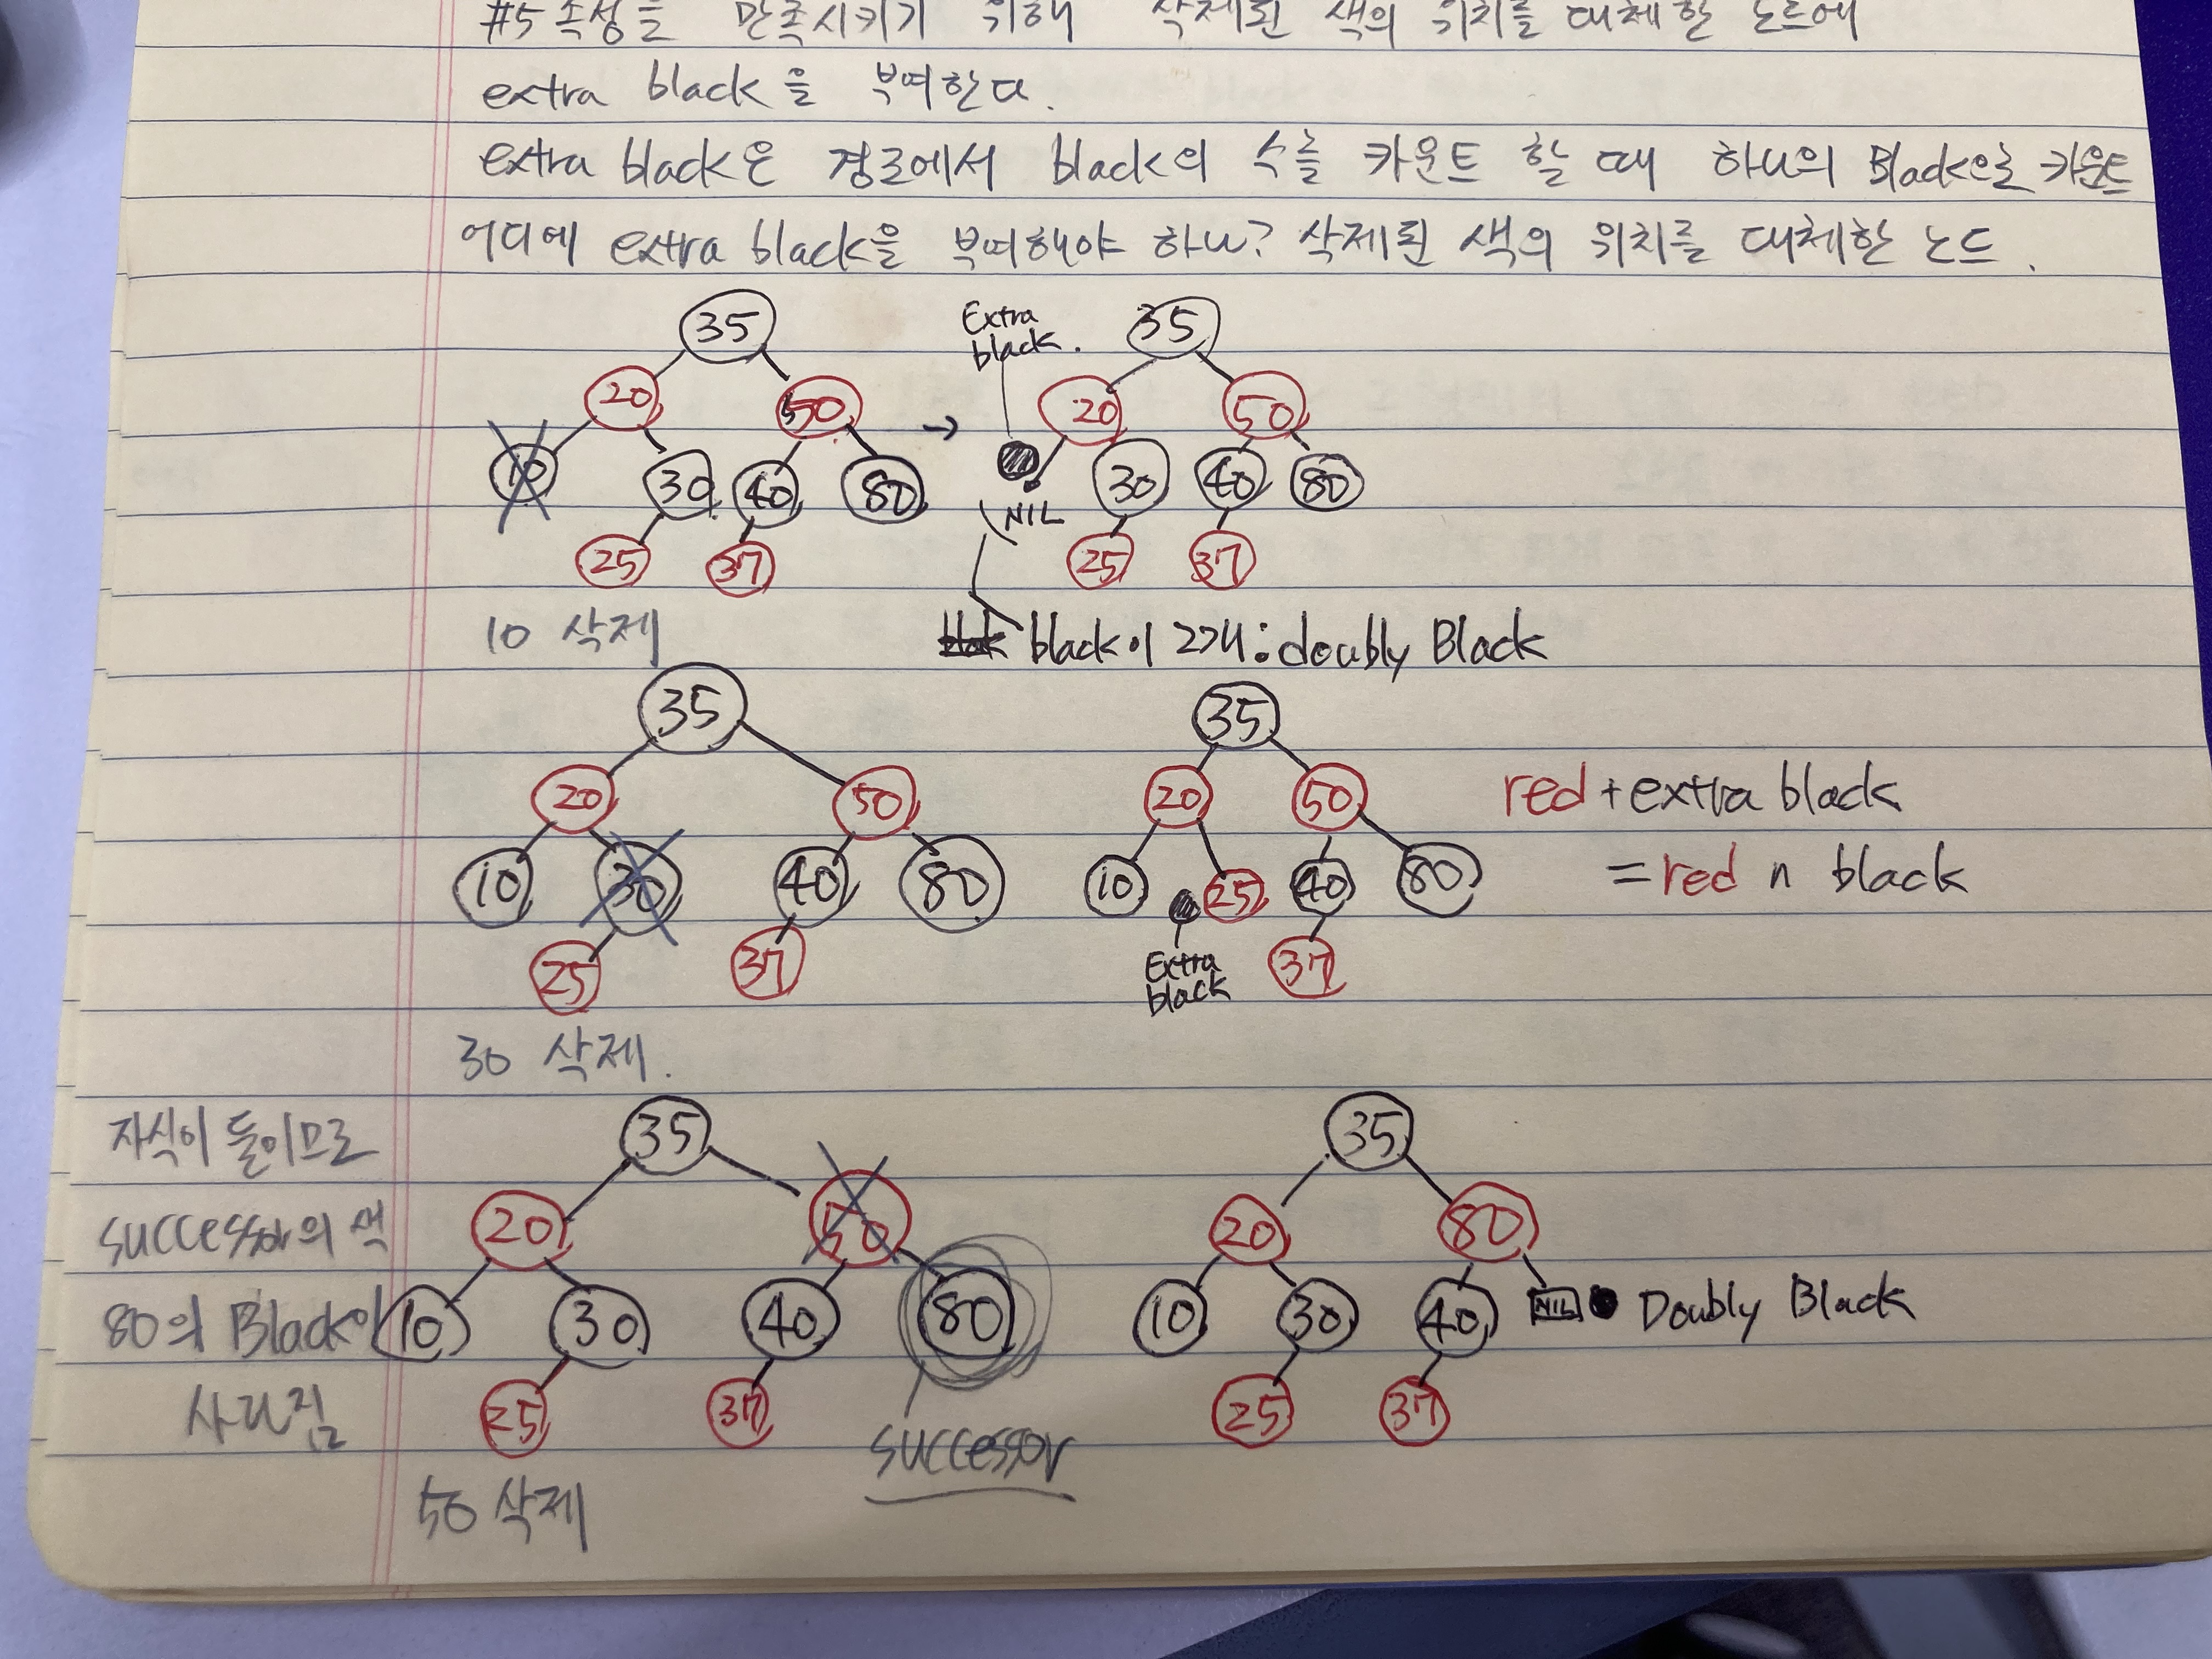 #5 속성을 만족시키기 위해 삭제된 색의 위치를 대체한 노드에
extra black을 부여한다.
extra black은 경로에서 black의 수를 카운트 할 때 하나의 Black으로 카운트
어디에 extra black을 부여해야 하나? 삭제된 색의 위치를 대체한 노드.
35
20 50
10 30 40 80
25 37
10 삭제
→
Extra
black.
35
20 50
NIL 30 40 80
25 37
black이 2개:doubly Black
35
20 50
10 30 40 80
25 37
30 삭제.
35
20 50
10 25 40 80
Extra
black
37
red + extra black
= red n black
자식이 둘이므로
successor의 색
80의 Black이
사라짐
35
20 50
10 30 40 80
25 37
successor
50 삭제
35
20 80
10 30 40 NIL Doubly Black
25 37